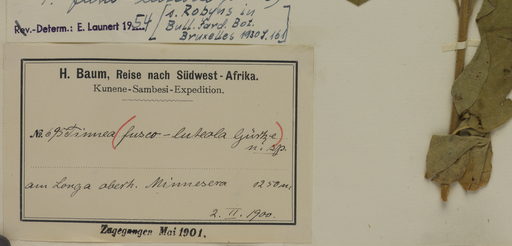 [v. Robyns in
Rev.-Determ.: E. Launert 1954 Bull. Jard. Bot.
Bruxelles 1930 p. 161]
H. Baum, Reise nach Südwest-Afrika.
Kunene-Sambesi-Expedition.
No. 695 Tinnea (fusco-luteola Gürke)
n. sp.
am Longa oberh. Minnesera 1250 m.
2. II. 1900.
Zugegangen Mai 1901.